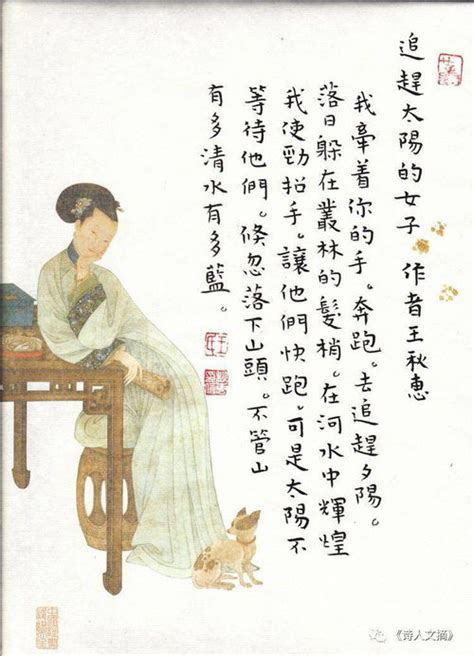 追趕太陽的女子 作者王秋惠
我牽着你的手。奔跑。去追趕夕陽。
落日躲在叢林的髮梢。在河水中輝煌
我使勁招手。讓他們快跑。可是太陽不
等待他們。倏忽落下山頭。不管山
有多清水有多藍。
《诗人文摘》